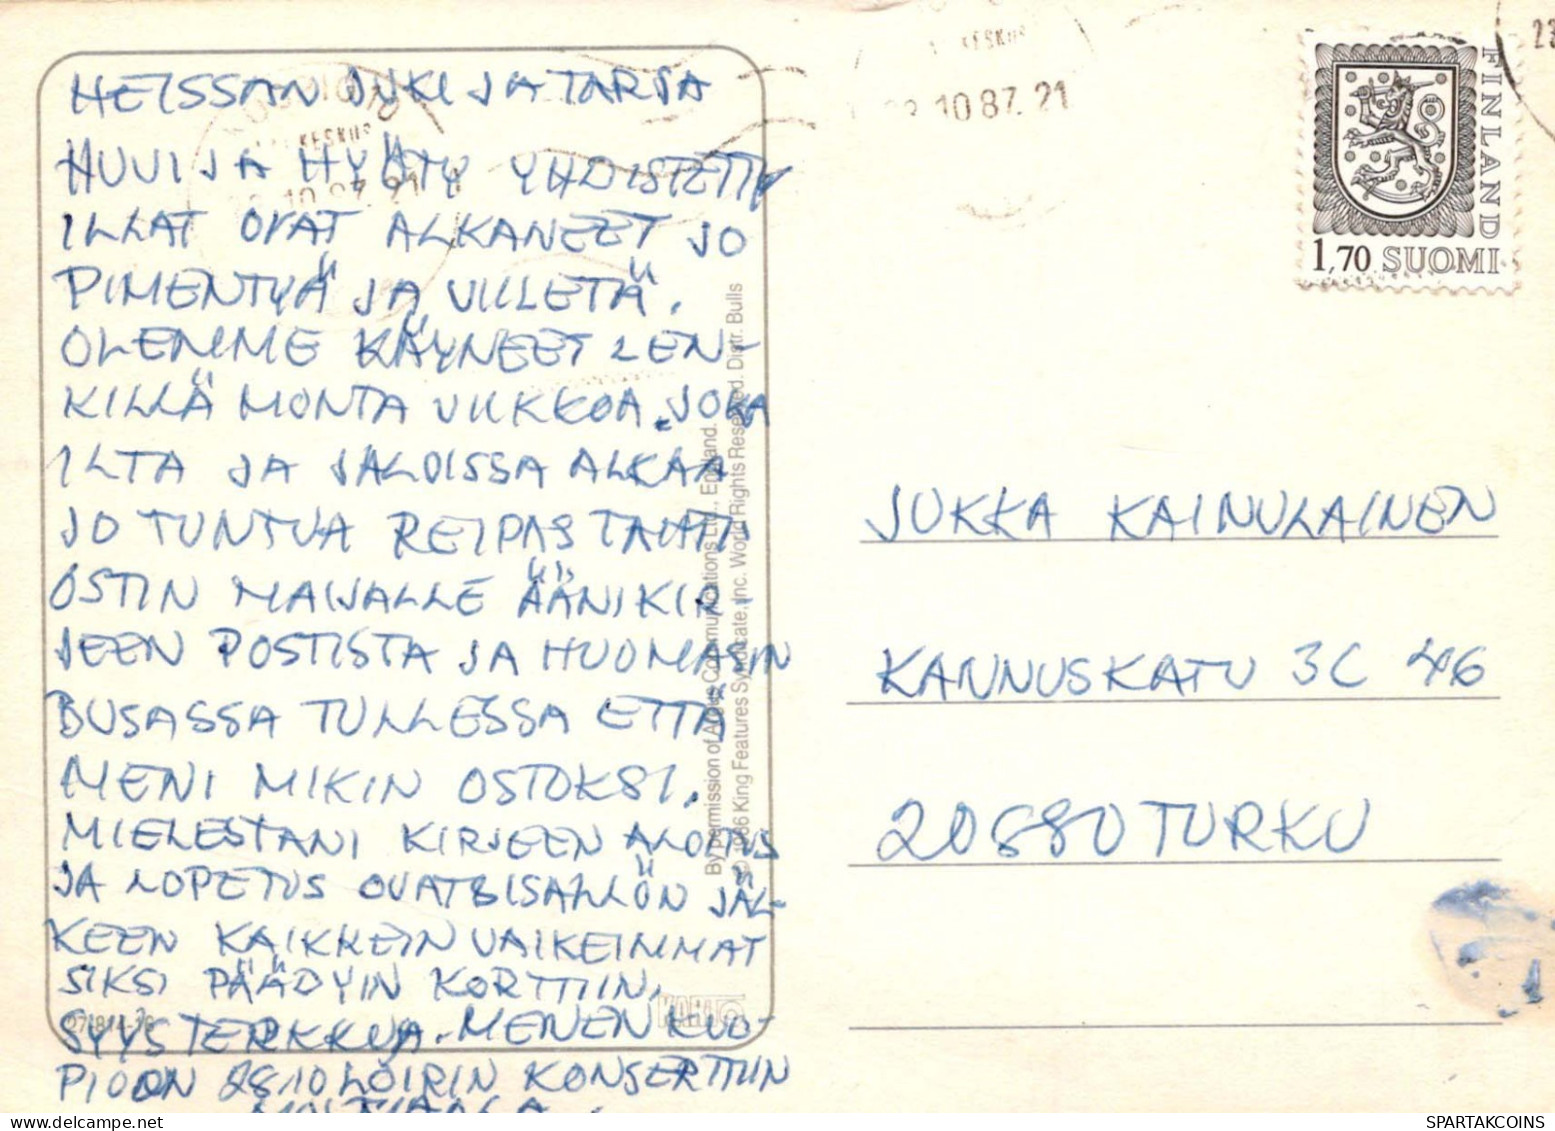 HEISSAN JUKI JA TARJA
HUVI JA HYÖTY YHDISTETTY
ILLAT OVAT ALKANEET JO
PIMENTYÄ JA VIILETÄ.
OLEMME KÄYNEET LEN-
KILLÄ MONTA VIIKKOA JOKA
ILTA JA JALOISSA ALKAA
JO TUNTUA REIPAS TAHTI
OSTIN MAIJALLE ÄÄNIKIR-
JEEN POSTISTA JA HUOMASIN
BUSASSA TULLESSA ETTÄ
MENI MIKIN OSTOKSI.
MIELESTÄNI KIRJEEN ALOITUS
JA LOPETUS OVAT SISÄLLÖN JÄL-
KEEN KAIKKEIN VAIKEIMMAT
SIKSI PÄÄDYIN KORTTIIN.
SYYSTERKKUJA. MENEN KUO-
PIOON 28.10 LOIRIN KONSERTTIIN
By permission of Argus Communications Ltd., England.
© 1986 King Features Syndicate, Inc. World Rights Reserved. Distr. Bulls
KARTO
KUOPIO 10
KESKUS
10.87.21
KESKUS
10.87.21
FINLAND
1,70 SUOMI
23
JUKKA KAINULAINEN
KANNUSKATU 3C 46
20880 TURKU
SPARTAKCOINS.COM